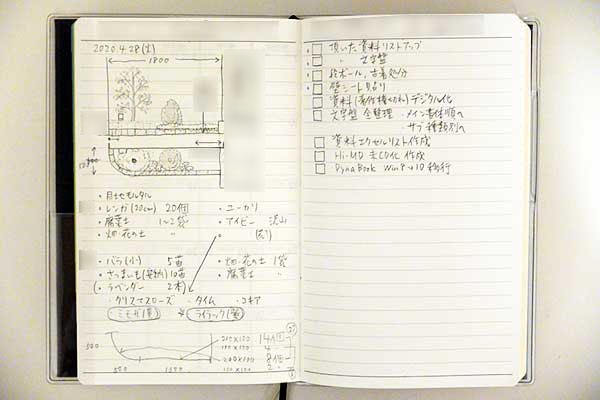 2020.4.28(土)
1800
・目地モルタル
・レンガ(20cm) 20個
・ユーカリ
・腐葉土 1〜2袋
・アイビー 沢山
・畑・花の土 〃
・バラ(小) 5苗
・畑・花の土 1袋
・さつまいも(安納)10苗
・腐葉土 〃
(・ラベンダー 2本)
・クリスマスローズ ・タイム ・コキア
ミモザ(黄) ライラック(紫)
500
210×150 14個
100×150 4
200×100 8個
150×150 2
500
頂いた資料リストアップ
〃 文字盤
段ボール、古着処分
壁シート貼り
資料(著作権切れ)デジタル化
文字盤 全整理・メイン書体順へ
・サブ種類別へ
資料エクセルリスト作成
Hi-MD をCD化 作成
DynaBook Win7→10移行